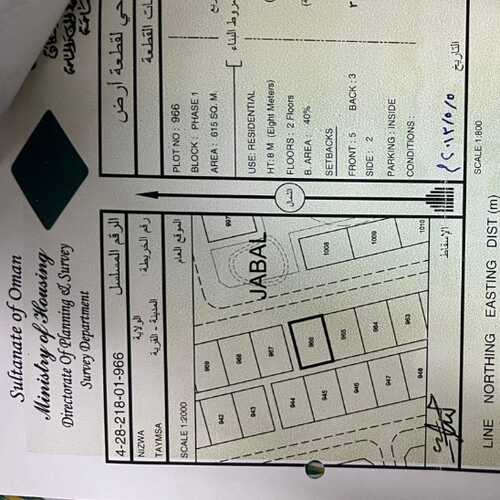 Sultanate of Oman
Ministry of Housing
Directorate Of Planning & Survey
Survey Department
4-28-218-01-966
الرقم المسلسل
NIZWA
الولاية
رقم الخريطة
TAYMSA
المدينة - القرية
SCALE 1:2000
الموقع العام
997
JABAL
1008
1009
1010
969
968
967
966
965
964
963
942
943
944
945
946
947
948
الشمال
قطعة ارض
PLOT NO : 966
BLOCK : PHASE 1
AREA : 615 SQ. M.
USE: RESIDENTIAL
HT: 8 M (Eight Meters)
FLOORS : 2 Floors
B. AREA : 40%
SETBACKS
FRONT : 5 BACK : 3
SIDE : 2
PARKING : INSIDE
CONDITIONS :
التاريخ
SCALE 1:800
LINE NORTHING EASTING DIST (m)